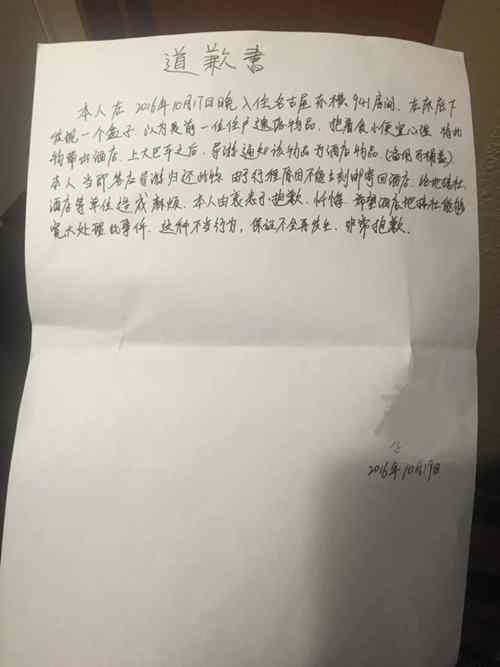 道歉書
本人在2016年10月17日晚入住名古屋东横941房间，在床底下
发现一个盒子，以为是前一位住户遗留物品，抱着贪小便宜心理 将此
物带出酒店。上大巴车之后，导游通知该物品为酒店物品。(温便百预盖)
本人当即答应导游归还此物 由于行程原因不能立刻邮寄回酒店。给地接社、
酒店等单位造成麻烦，本人由衷表示抱歉、忏悔 希望酒店地接社能够
宽大处理此事件，这种不当行为，保证不会再发生，非常抱歉。
2016年10月19日